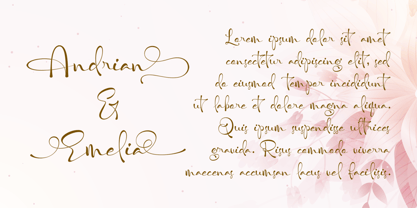 Andrian
&
Emelia
Lorem ipsum dolor sit amet
consectetur adipiscing elit, sed
do eiusmod tempor incididunt
ut labore et dolore magna aliqua.
Quis ipsum suspendisse ultrices
gravida. Risus commodo viverra
maecenas accumsan lacus vel facilisis.